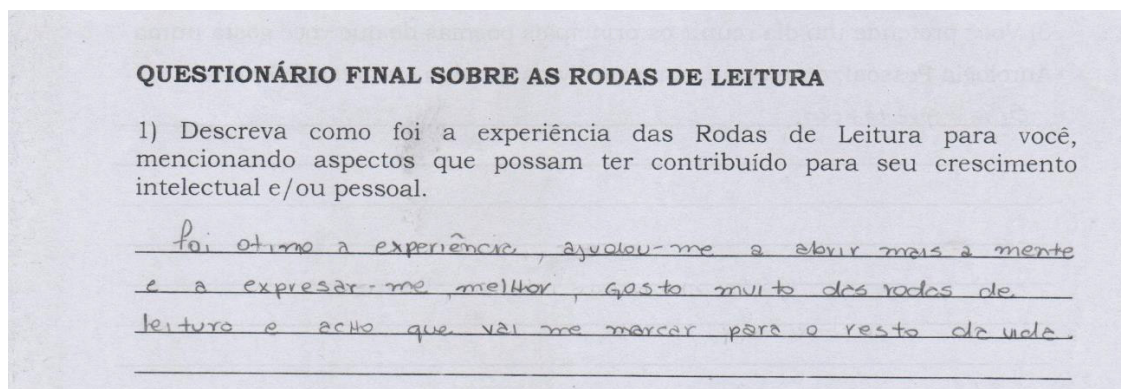 QUESTIONÁRIO FINAL SOBRE AS RODAS DE LEITURA
1) Descreva como foi a experiência das Rodas de Leitura para você,
mencionando aspectos que possam ter contribuído para seu crescimento
intelectual e/ou pessoal.
foi otimo a experiência, ajudou-me a abrir mais a mente
e a expresar-me melhor, Gosto muito das rodas de
leitura e acho que vai me marcar para o resto da vida.